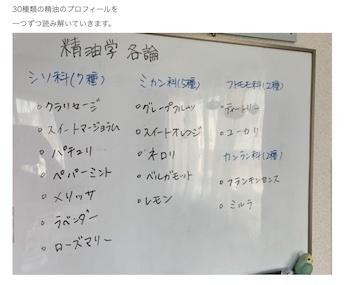 30種類の精油のプロフィールを
一つずつ読み解いていきます。
精油学 各論
シソ科(7種)
○クラリセージ
○スイートマージョラム
○パチュリ
○ペパーミント
○メリッサ
○ラベンダー
○ローズマリー
ミカン科(5種)
○グレープフルーツ
○スイートオレンジ
○ネロリ
○ベルガモット
○レモン
フトモモ科(2種)
○ティートリー
○ユーカリ
カンラン科(2種)
○フランキンセンス
○ミルラ